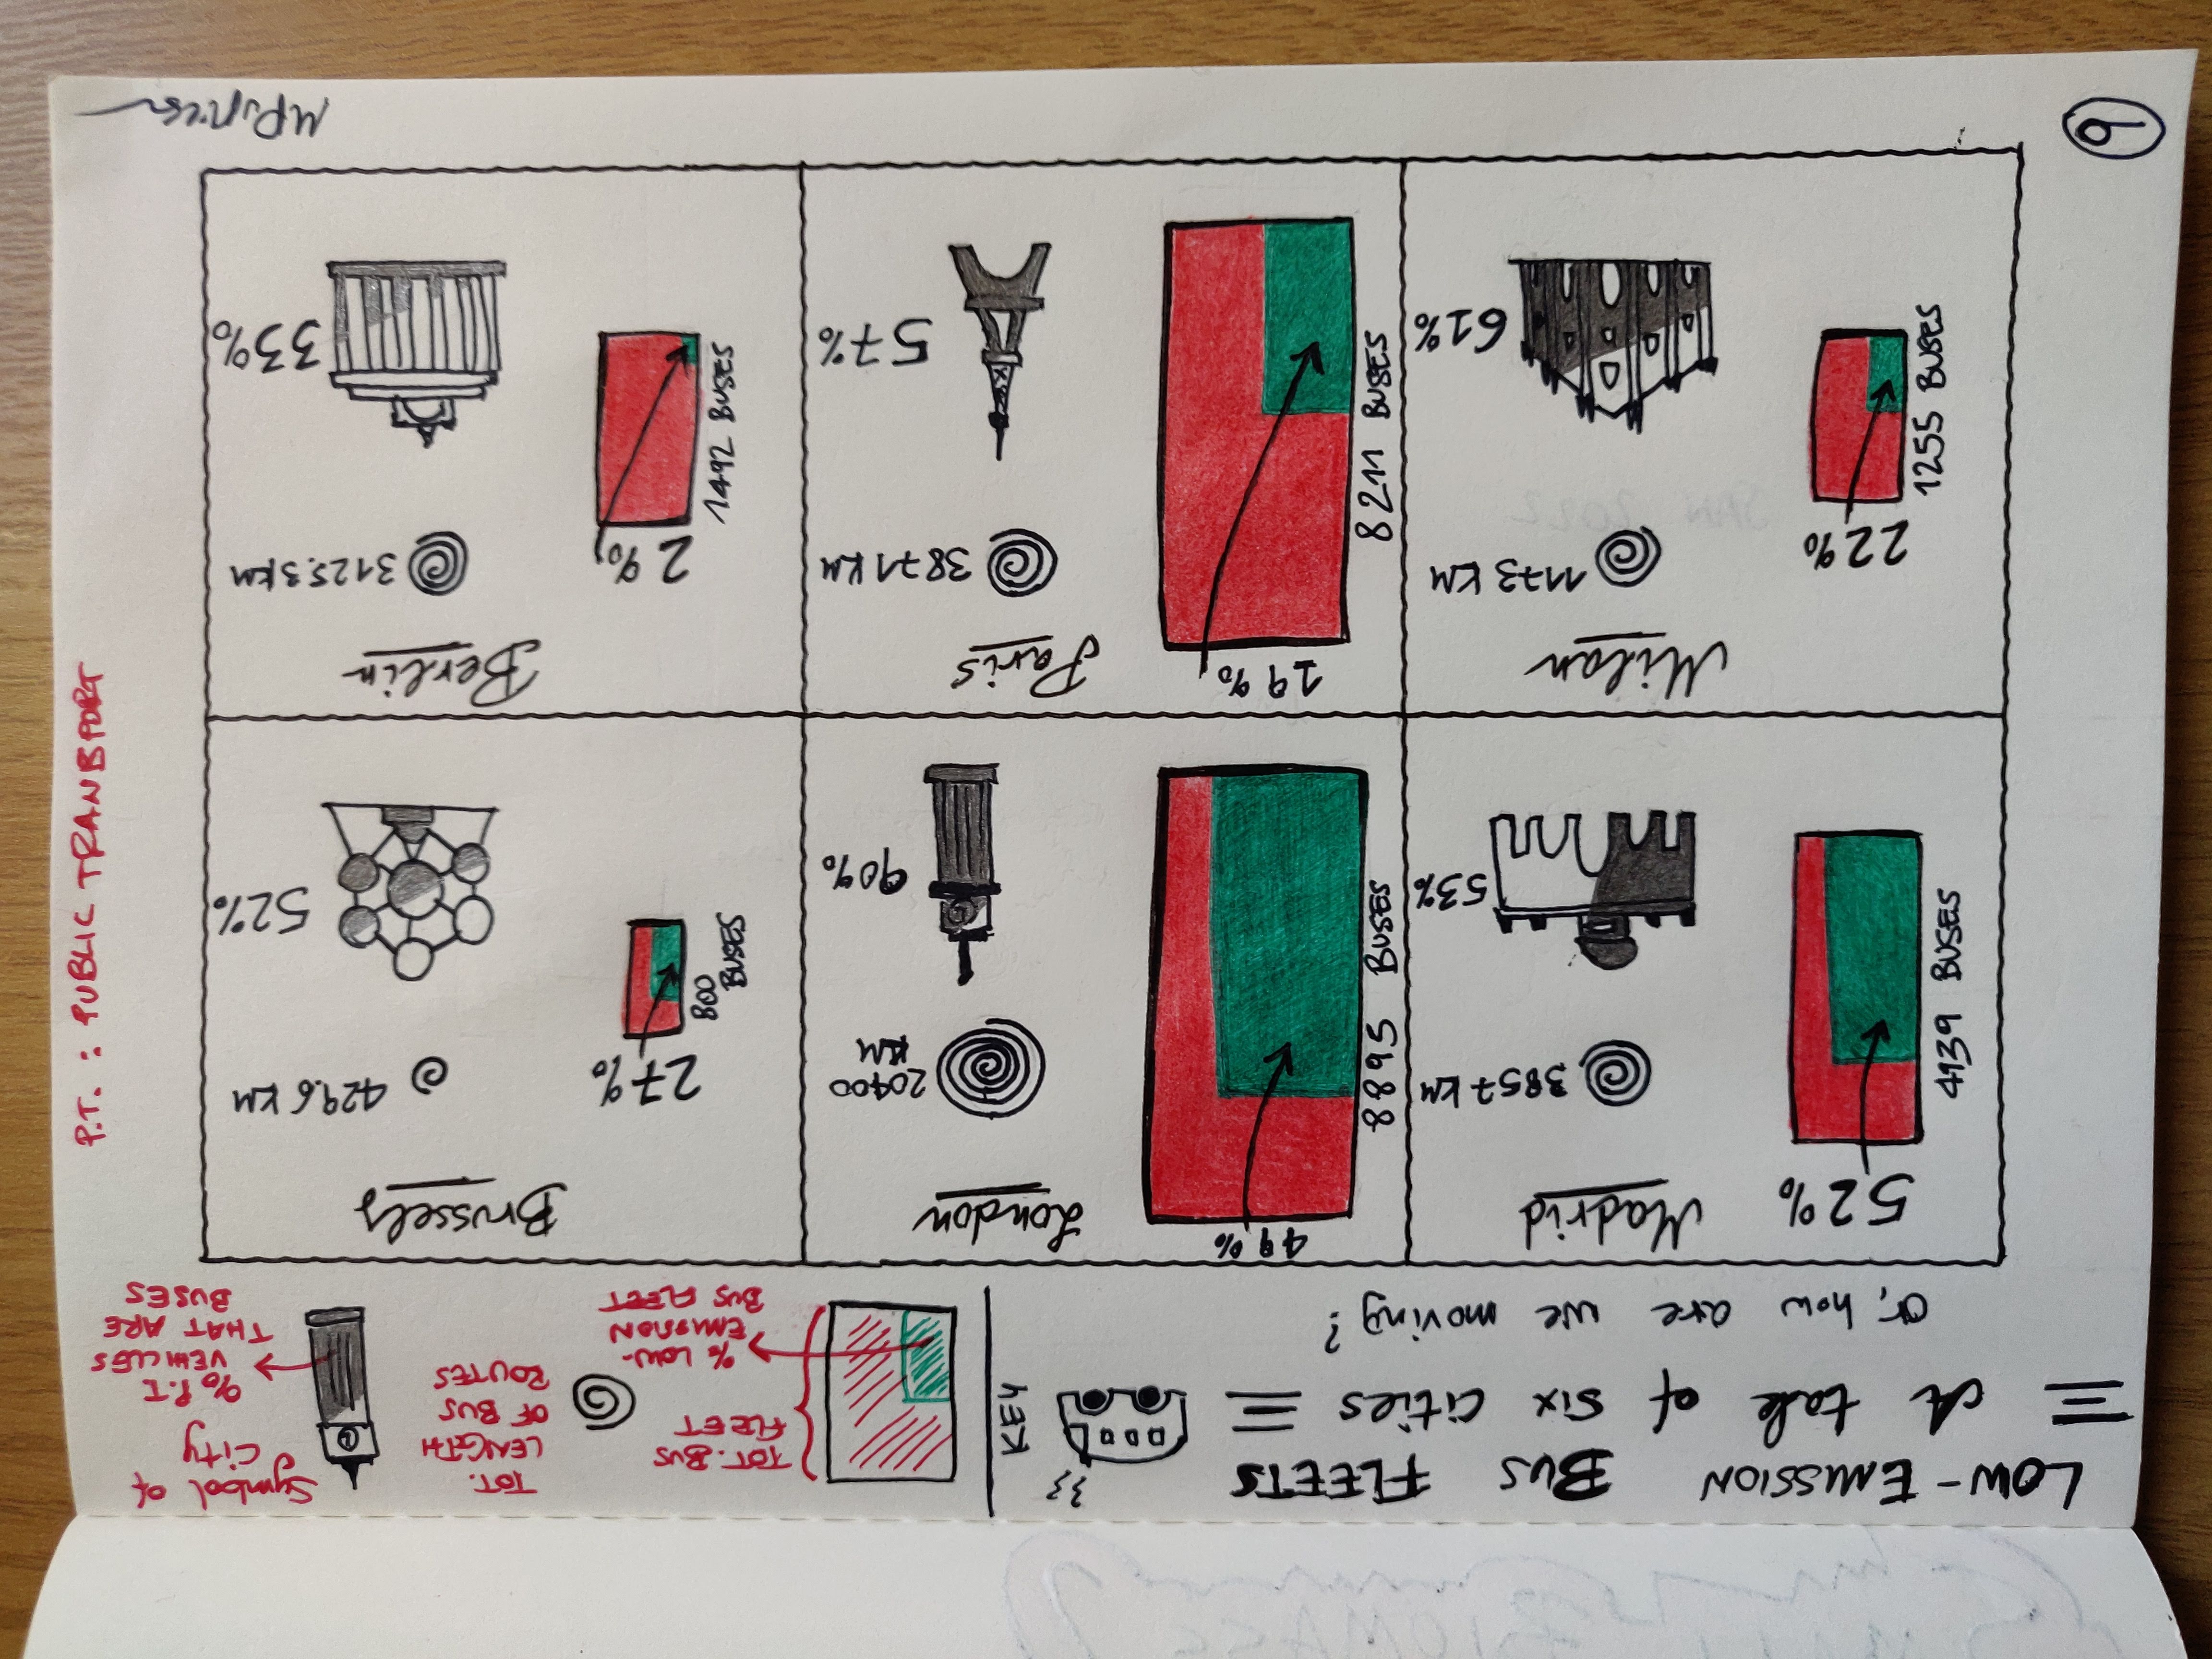 LOW-EMISSION BUS FLEETS
A tale of six cities
or, how are we moving?
KEY
TOT. BUS
FLEET
% LOW-
EMISSION
BUS FLEET
TOT.
LENGTH
OF BUS
ROUTES
Symbol of
city
% P.T.
VEHICLES
THAT ARE
BUSES
Madrid
52%
4939 BUSES
3857 KM
53%
London
49%
8895 BUSES
20400
KM
90%
Brussels
27%
800
BUSES
429.6 KM
52%
Milan
22%
1255 BUSES
1173 KM
61%
Paris
19%
8211 BUSES
3871 KM
57%
Berlin
2%
1492 BUSES
3125.3 KM
33%
P.T. : PUBLIC TRANSPORT